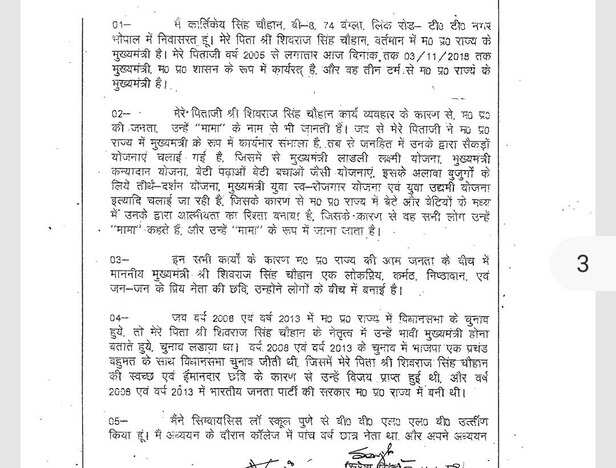 01– मैं कार्तिकेय सिंह चौहान, बी–8, 74 बंग्ला, लिंक रोड– टी० टी० नगर
भोपाल में निवासरत् हूं। मेरे पिता श्री शिवराज सिंह चौहान, वर्तमान में म० प्र० राज्य के
मुख्यमंत्री है। मेरे पिताजी वर्ष 2005 से लगातार आज दिनांक तक 03/11/2018 तक
मुख्यमंत्री, म० प्र० शासन के रूप में कार्यरत् है, और वह तीन टर्म से म० प्र० राज्य के
मुख्यमंत्री है।
02– मेरे पिताजी श्री शिवराज सिंह चौहान कार्य व्यवहार के कारण से, म० प्र०
की जनता, उन्हें "मामा" के नाम से भी जानती हैं। जब से मेरे पिताजी ने म० प्र०
राज्य में मुख्यमंत्री के रूप में कार्यभार संभाला है, तब से जनहित में उनके द्वारा सैकड़ों
योजनाएं चलाई गई है, जिसमें से मुख्यमंत्री लाडली लक्ष्मी योजना, मुख्यमंत्री
कन्यादान योजना, बेटी पढ़ाओं बेटी बचाओं जैसी योजनाएं, इसके अलावा बुजुर्गो के
लिये तीर्थ–दर्शन योजना, मुख्यमंत्री युवा स्व–रोजगार योजना एवं युवा उद्यमी योजना
इत्यादि चलाई जा रही है, जिसके कारण से म० प्र० राज्य में बेटे और बेटियों के मध्य
में उनके द्वारा आत्मीयता का रिश्ता बनाया है, जिसके कारण से वह सभी लोग उन्हें
"मामा" कहते हैं, और उन्हें "मामा" के रूप में जाना जाता है।
03– इन सभी कार्यो के कारण म० प्र० राज्य की आम जनता के बीच में
माननीय मुख्यमंत्री श्री शिवराज सिंह चौहान एक लोकप्रिय, कर्मठ, निष्ठावान, एवं
जन–जन के प्रिय नेता की छवि, उन्होने लोगों के बीच में बनाई है।
04– जब वर्ष 2008 एवं वर्ष 2013 में म० प्र० राज्य में विधानसभा के चुनाव
हुये, तो मेरे पिता श्री शिवराज सिंह चौहान के नेतृत्व में उन्हें भावी मुख्यमंत्री होना
बताते हुये, चुनाव लडाया था। वर्ष 2008 एवं वर्ष 2013 के चुनाव में भाजपा एक प्रचंड
बहुमत के साथ विधानसभा चुनाव जीती थी, जिसमें मेरे पिता श्री शिवराज सिंह चौहान
की स्वच्छ एवं ईमानदार छवि के कारण से उन्हें विजय प्राप्त हुई थी, और वर्ष
2008 एवं वर्ष 2013 में भारतीय जनता पार्टी की सरकार म० प्र० राज्य में बनी थी।
3
05– मैंने सिम्बायसिस लॉ स्कूल पुणे से बी० बी० एल० एल० बी० उर्त्तीण
किया हूं। मैं अध्ययन के दौरान कॉलेज में पांच वर्ष छात्र नेता था, और अपने अध्ययन